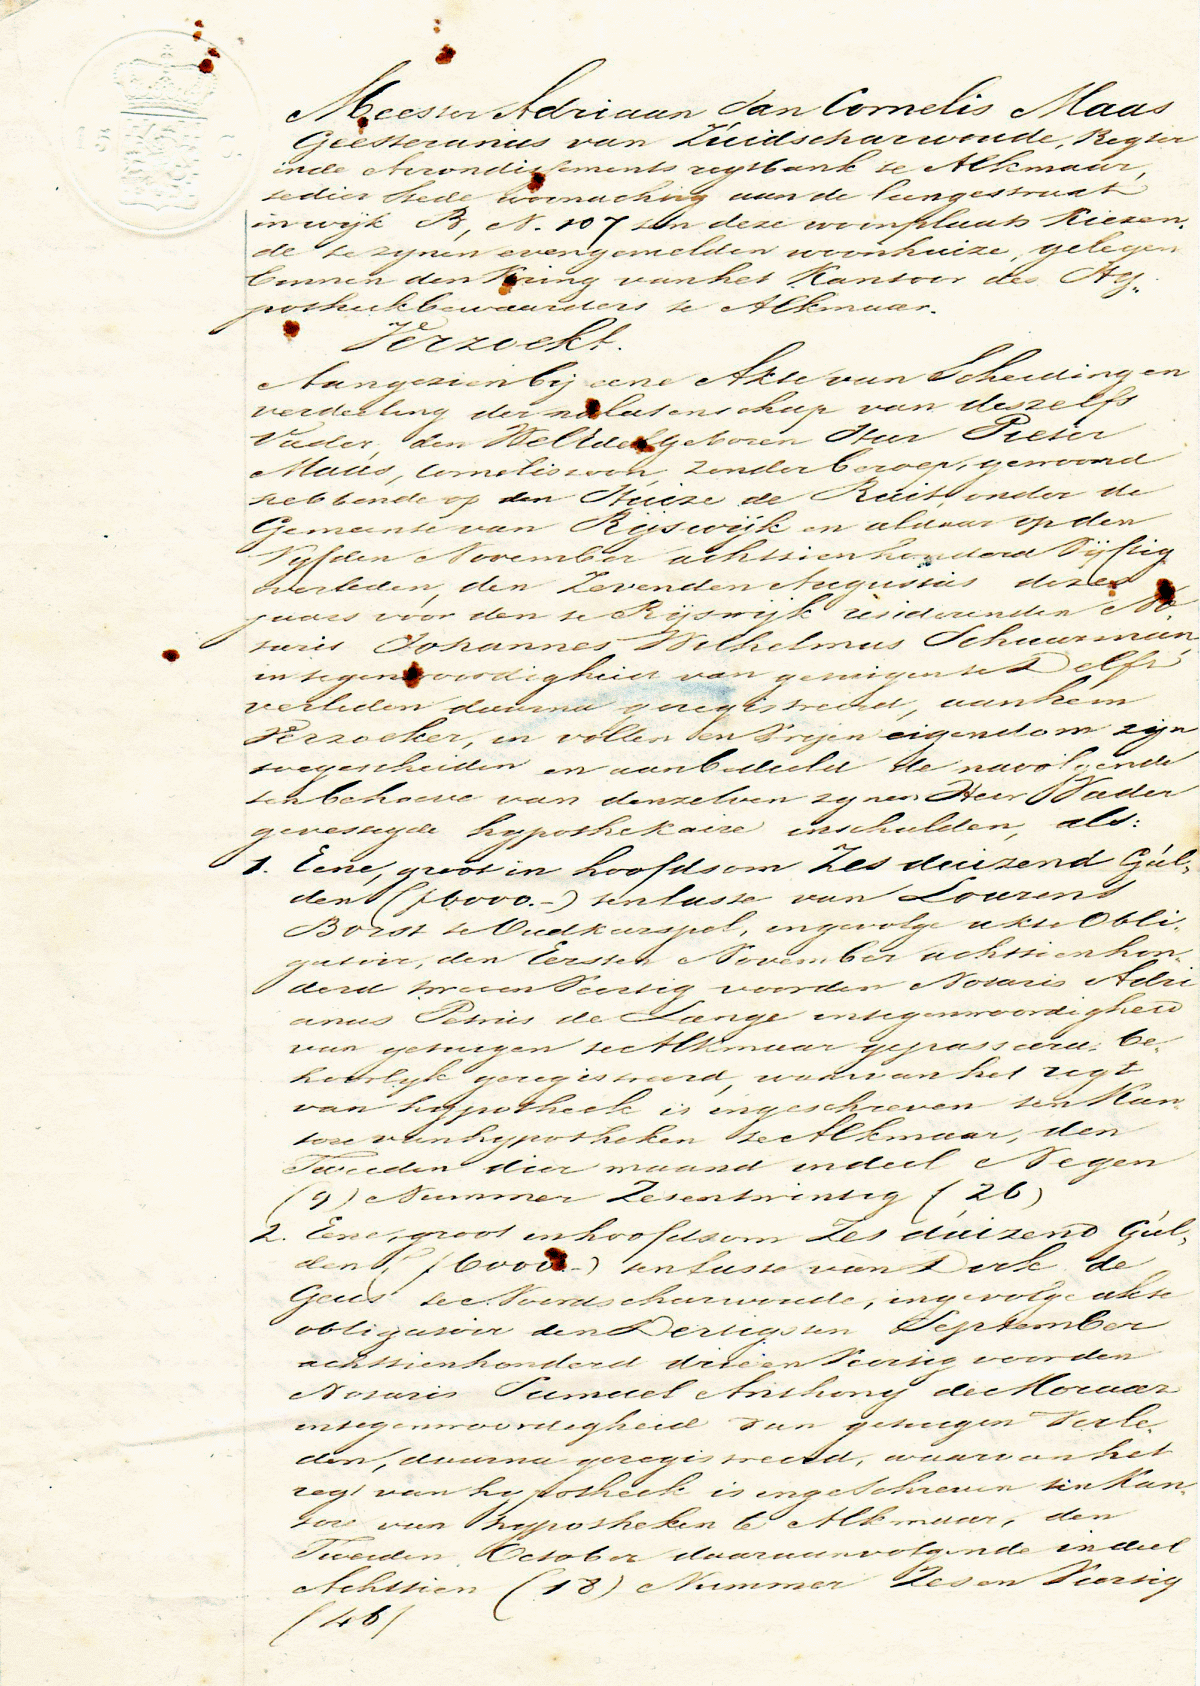 Meester Adriaan Jan Cornelis Maas
Geesteranus van Zuidscharwoude, Regter
inde Arrondissements regtbank te Alkmaar,
te dier stede woonachtig aan de langestraat
in wijk B, N. 107 ten deze woonplaats kiezen-
de te zynen evengemelden woonhuize, gelegen
binnen den Kring van het Kantoor des Hy-
potheekbewaarders te Alkmaar.
Verzoekt.
Aangezien bij eene Akte van Scheiding en
verdeeling der nalatenschap van deszelfs
Vader, den WelEdelgeboren Heer Pieter
Maas, Corneliszoon, zonder beroep, gewoond
hebbende op den Huize de Ruit, onder de
Gemeente van Rijswijk en aldaar op den
Vijfden November achttienhonderd Vijftig
overleden, den Zevenden Augustus dezes
jaars voor den te Rijswijk resideerenden No-
taris Johannes Wilhelmus Schuurman
in tegenwoordigheid van getuigen te Delft
verleden daarna geregistreerd, aan hem
Verzoeker, in vollen en Vrijen eigendom zijn
toegescheiden en aanbedeeld de navolgende
ten behoeve van denzelven zynen Heer Vader
gevestigde hypothekaire inschulden, als:
1. Eene, groot in hoofdsom Zes duizend Gul-
den (f6000.-) ten laste van Lourens
Borst te Oudkarspel, ingevolge akte Obli-
gatoir, den Eersten November achttienhon-
derd tweeenVeertig voor den Notaris Adri
anus Petrus de Lange in tegenwoordigheid
van getuigen te Alkmaar gepasseerd. be-
hoorlyk geregistreerd, waarvan het regt
van hypotheek is ingeschreven ten Kan-
tore van hypotheken te Alkmaar, den
Tweeden dier maand in deel Negen
(9) Nummer Zesentwintig (26)
2. Eene, groot in hoofdsom Zes duizend Gul-
den (f6000.-) ten laste van Dirk de
Geus te Noordscharwoude, ingevolge akte
obligatoir den Dertigsten September
achttienhonderd drieenVeertig voor den
Notaris Samuel Anthony de Moraaz
in tegenwoordigheid van getuigen Verle-
den, daarna geregistreerd, waarvan het
regt van hypotheek is ingeschreven ten Kan-
tore van hypotheken te Alkmaar, den
Tweeden October daaraanvolgende in deel
Achttien (18) Nummer ZesenVeertig
(46)